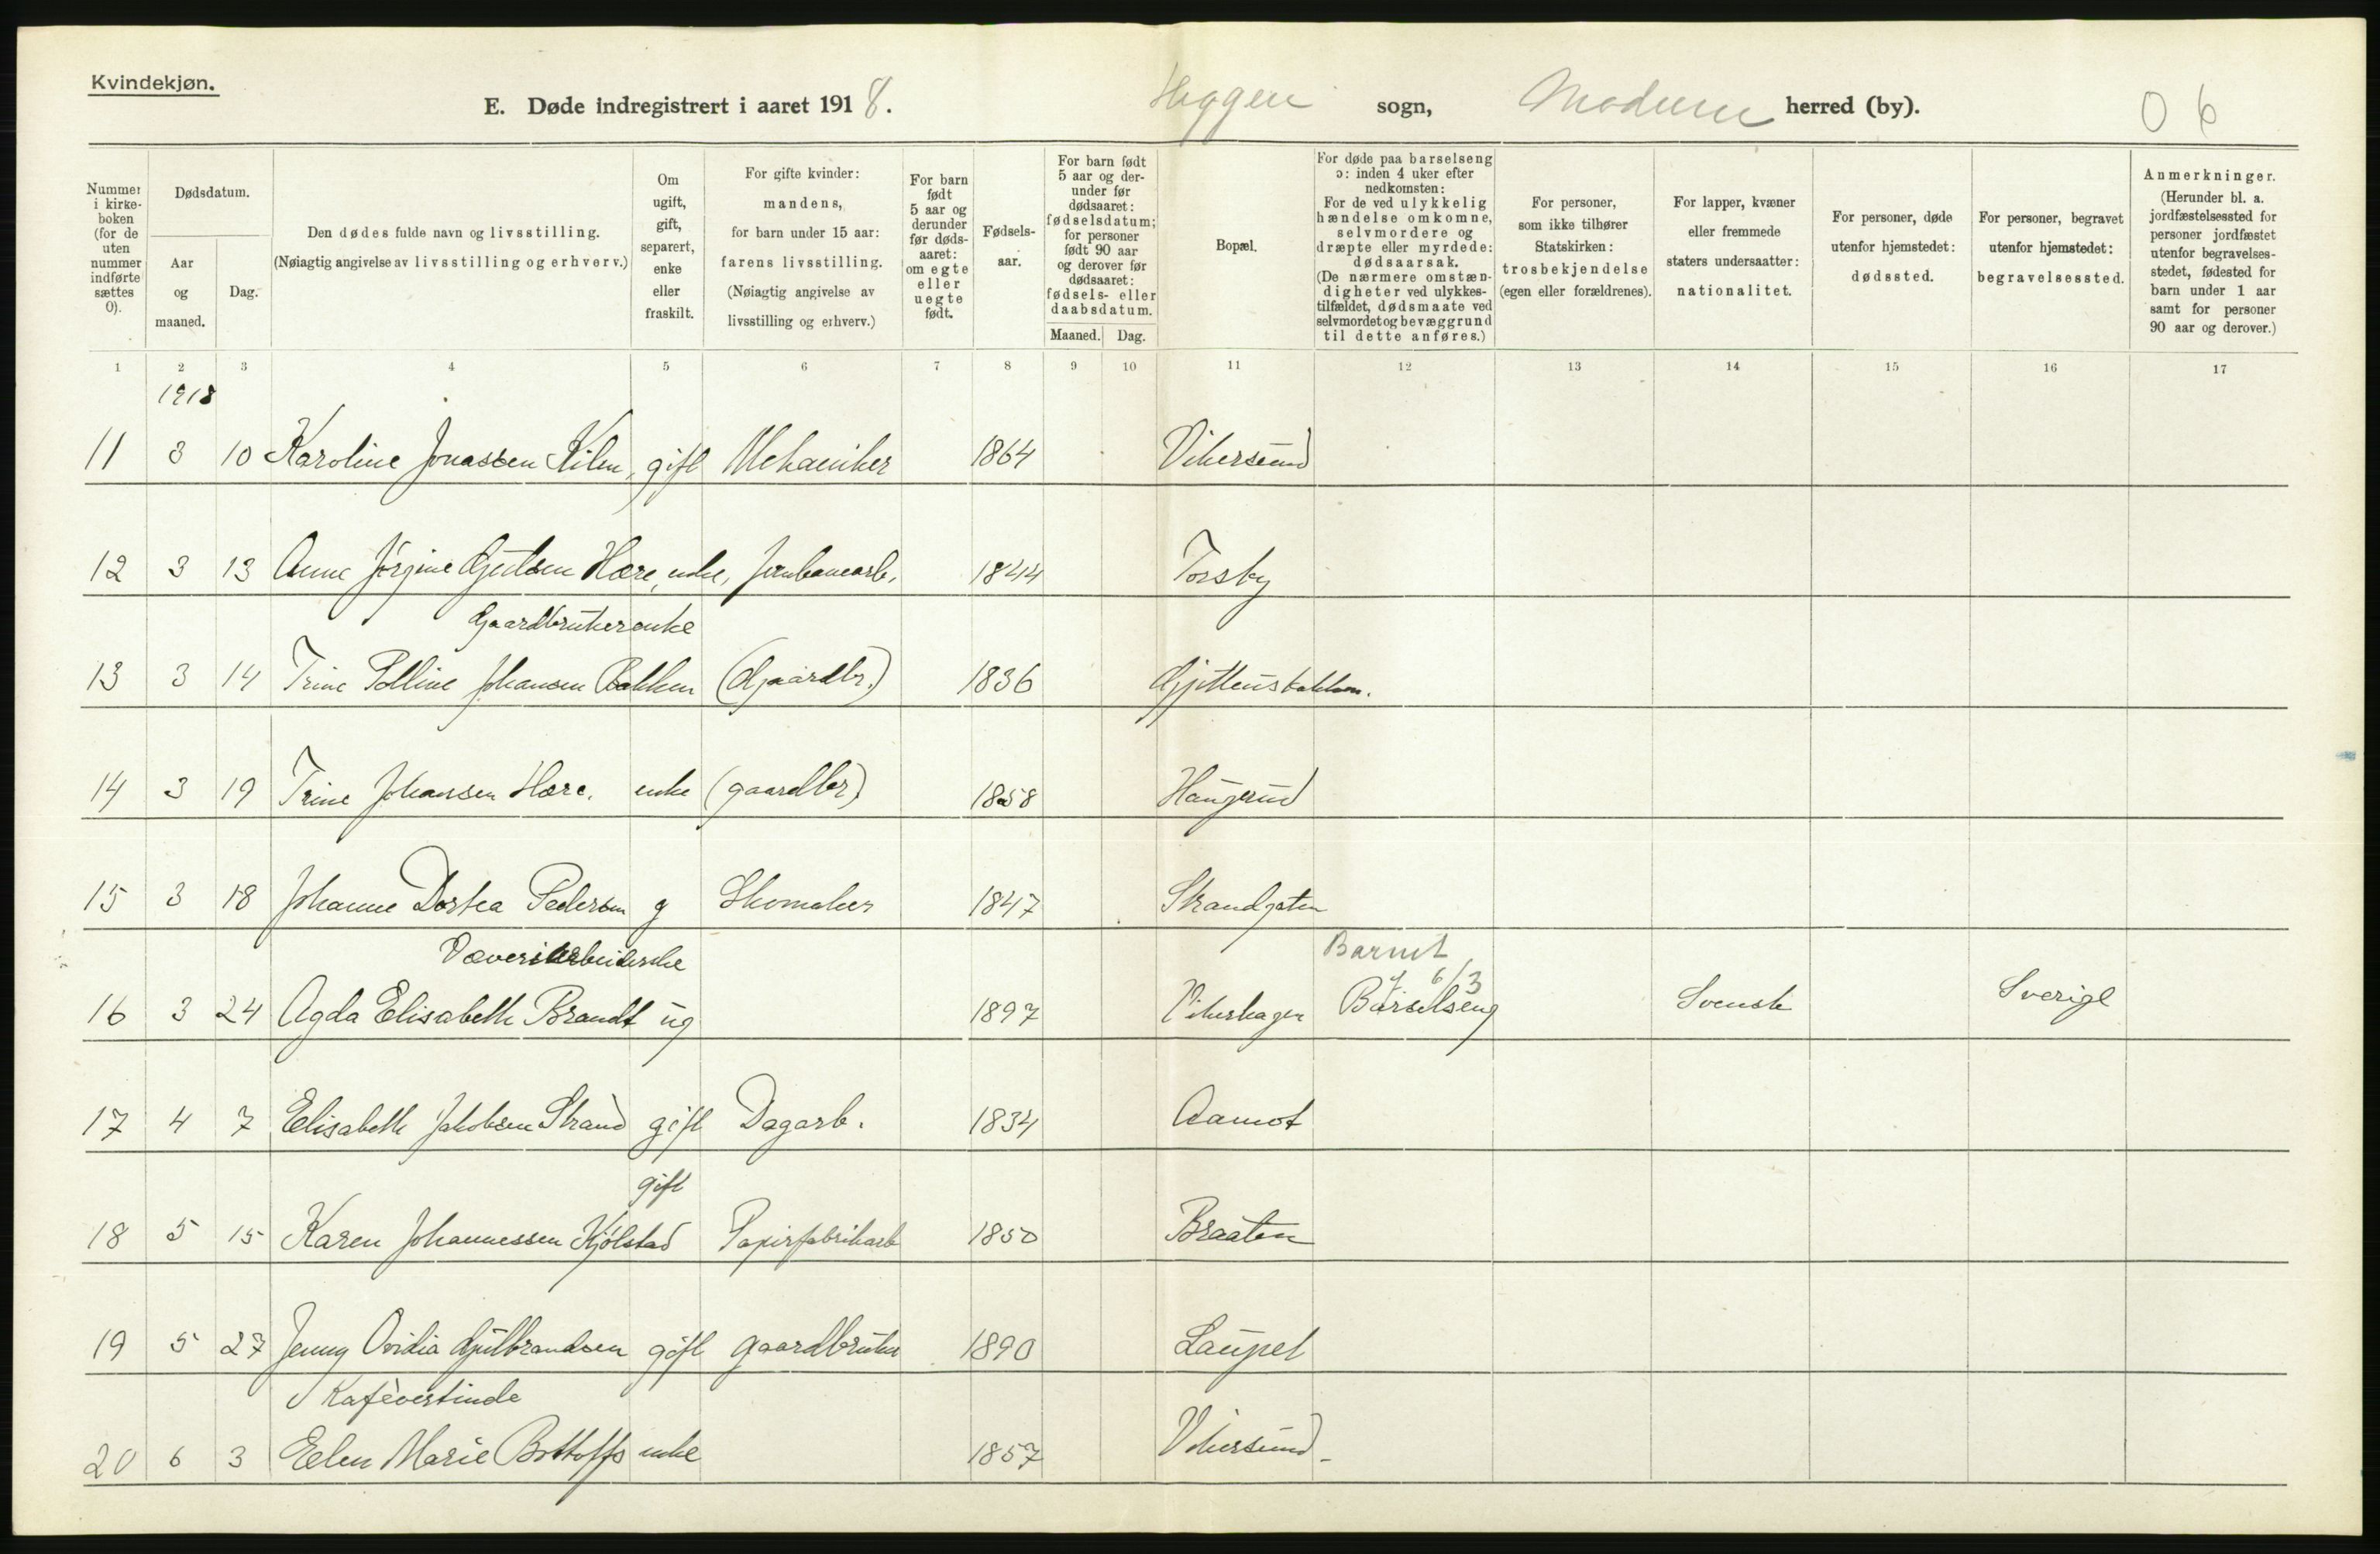 Kvindekjøn.
E. Døde indregistrert i aaret 1918. Heggen sogn, Modum herred (by). 0 6
Nummer i kirke-boken (for de uten nummer indførte sættes 0).
Dødsdatum.
Aar og maaned.
Dag.
Den dødes fulde navn og livsstilling.
(Nøiagtig angivelse av livsstilling og erhverv.)
Om ugift, gift, separert, enke eller fraskilt.
For gifte kvinder: mandens, for barn under 15 aar: farens livsstilling. (Nøiagtig angivelse av livsstilling og erhverv.)
For barn født 5 aar og derunder før døds-aaret: om egte eller uegte født.
Fødsels-aar.
For barn født 5 aar og der-under før dødsaaret: fødselsdatum; for personer født 90 aar og derover før dødsaaret: fødsels- eller daabsdatum.
Maaned. Dag.
Bopæl.
For døde paa barselseng ɔ: inden 4 uker efter nedkomsten: For de ved ulykkelig hændelse omkomne, selvmordere og dræpte eller myrdede: dødsaarsak. (De nærmere omstæn-digheter ved ulykkes-tilfældet, dødsmaate ved selvmordet og bevæggrund til dette anføres.)
For personer, som ikke tilhører Statskirken: trosbekjendelse (egen eller forældrenes).
For lapper, kvæner eller fremmede staters undersaatter: nationalitet.
For personer, døde utenfor hjemstedet: dødssted.
For personer, begravet utenfor hjemstedet: begravelsessted.
Anmerkninger. (Herunder bl. a. jordfæstelsessted for personer jordfæstet utenfor begravelses-stedet, fødested for barn under 1 aar samt for personer 90 aar og derover.)
1 2 3 4 5 6 7 8 9 10 11 12 13 14 15 16 17
1918
11 3 10 Karoline Jonassen Kilen, gift Mekaniker 1864 Vikersund
12 3 13 Anne Jørgine Gulsen Hære, enke, Jernbanearb. 1844 Torsby
Gaardbrukerenke
13 3 14 Trine Polline Johansen Bakken (Gaardbr.) 1836
14 3 19 Trine Johansen Hære. enke (gaardbr) 1858 Haugerud
15 3 18 Johanne Dortea Pedersen g Skomaker 1847 Strandgaten
Væveriarbeiderske Barnet
6/3
16 3 24 Agda Elisabeth Brandt ug 1897 Vikerhagen Barselseng Svensk Sverige
17 4 7 Elisabeth Jakobsen Strand gift Dagarb. 1834 Aamot
gift
18 5 15 Karen Johannessen Kjølstad Papirfabrikarb 1850 Braaten
19 5 27 Jenny Ovidia Gulbrandsen gift gaardbruker 1890 Laupet
Kafévertinde
20 6 3 Elen Marie enke 1857 Vikersund